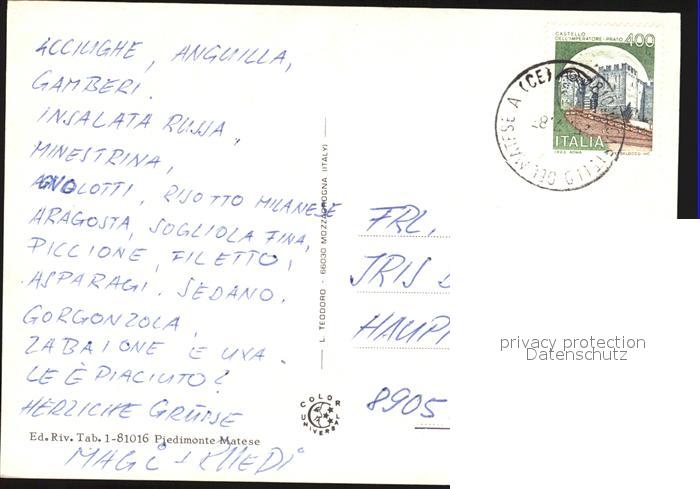 ACCIUGHE, ANGUILLA,
GAMBERI.
INSALATA RUSSA,
MINESTRINA,
AGNOLOTTI, RISOTTO MILANESE
ARAGOSTA, SOGLIOLA FINA,
PICCIONE, FILETTO,
ASPARAGI. SEDANO.
GORGONZOLA,
ZABAIONE E UVA.
LE È PIACIUTO?
HERZLICHE GRÜSSE
Ed. Riv. Tab. 1-81016 Piedimonte Matese
MAGI + RUEDI
L. TEODORO - 66030 MOZZAGROGNA (ITALY)
COLOR
UNIVERSAL
CASTELLO
DELL'IMPERATORE-PRATO 400
ITALIA
DEL MATESE A (CE)
FRL.
IRIS
HAUPT
8905
privacy protection
Datenschutz